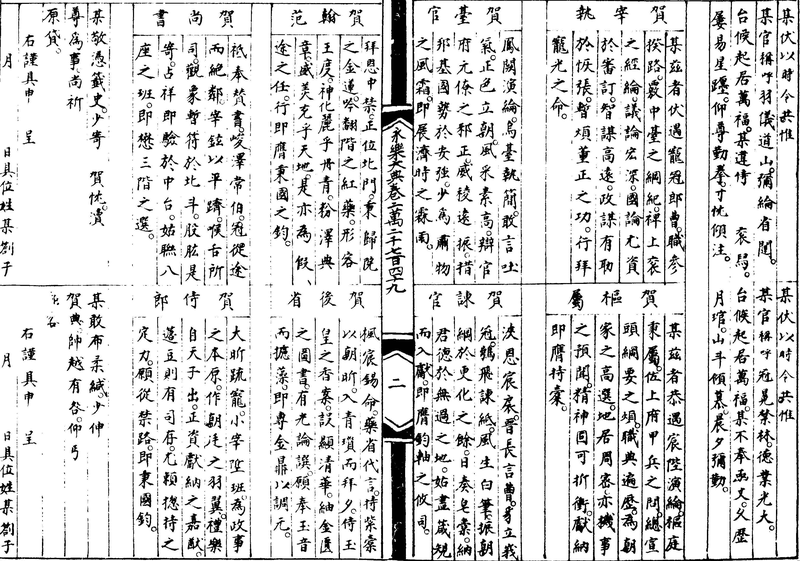 某伏以時令共惟
某官稱呼羽儀道山。彌綸省闥。
台候起居萬福。某違侍 袞舄。
屢易星躔。仰尊勤摹。寸忱傾注。
賀宰執
某茲者伏遇寵冠郎曹。職參
揆路。爰中臺之綱紀。裨上袞
之經綸。議論宏深。國論尤資
於審訂。智謀高遠。政謀有助
於恢張。暫煩董正之功。行拜
寵光之命。
賀臺官
鳳闕演綸。烏臺執簡。敢言吐
氣。正色立朝。風采素高。辯官
府元僚之邪正。威稜遠振。措
邦基國勢於安強。少為肅物
之風霜。即展濟時之霖雨。
某伏以時令共惟
某官稱呼冠冕繁林。德業光大。
台候起居萬福。某不奉函丈。久歷
月琯。山斗傾慕。晨夕彌勤。
賀樞屬
某茲者恭遇宸陛演綸。樞庭
東屬。佐上府甲兵之問。總宣
頭綱要之煩。職典遍歷。為朝
家之高選。地居周密。亦機事
之預聞。精神固可折衝。獻納
即膺持橐。
賀諫官
浹恩宸扆。晉長言曹。豸立峩
冠。鶴飛諫紙。風生白筆。振朝
綱於更化之餘。日奏皂囊。納
君德於無過之地。姑盡箴規
而入獻。即膺鈞軸之攸司。
永樂大典卷二萬二千七百四十九
二
賀翰苑
拜恩中禁。正位北門。東歸院
之金蓮。吟翻階之紅藥。形容
王度。神化麗乎丹青。粉澤典
章。盛美充乎天地。是亦為假
途之任。行即膺秉國之鈞。
賀尚書
祗奉贊書。爰澤常伯。冠從途
而絕鄰。宰鉉以平躋。喉舌所
司。觀象暫符於北斗。股肱是
寄。占祥即驗於中台。姑聯八
座之班。即懋三階之選。
某敬憑籤史。少寄 賀忱。瀆
尊為事。尚祈
原貸。
右謹具申 呈
月 日具位姓某劄子
賀後省
楓宸錫命。藥省代言。持紫橐
以朝昕。入青瑣而拜夕。侍玉
皇之香案。誤顯清華。紬金匱
之圖書。有光論譔。願奉玉音
而摭藻。即尊金鼎以調元。
賀侍郎
大昕疏寵。小宰陞班。為政事
之本原。作朝廷之羽翼。禮樂
自天子出。正資獻納之嘉猷。
籩豆則有司存。尤賴摠持之
定力。願從禁路。即秉國鈞。
某敢布柔緘。少伸
賀典師越有咎。仰丐
右謹具申 呈
月 日具位姓某劄子